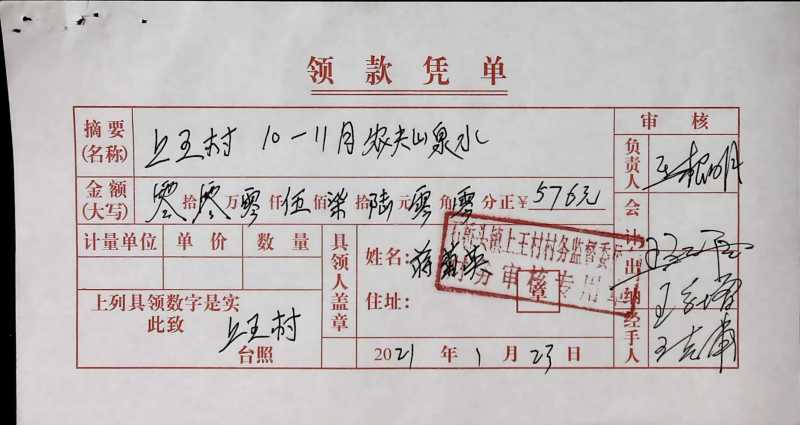 领款凭单
摘要(名称) 上王村 10-11月农夫山泉水
审核
负责人
金额(大写) 零拾零万零仟伍佰柒拾陆元零角零分正¥576元
会计
计量单位 单价 数量
具领人盖章
姓名: 蒋
住址:
上王村村务监督委
审核专用章
出纳
上列具领数字是实
此致 上王村
台照
2021年1月23日
经手人 王